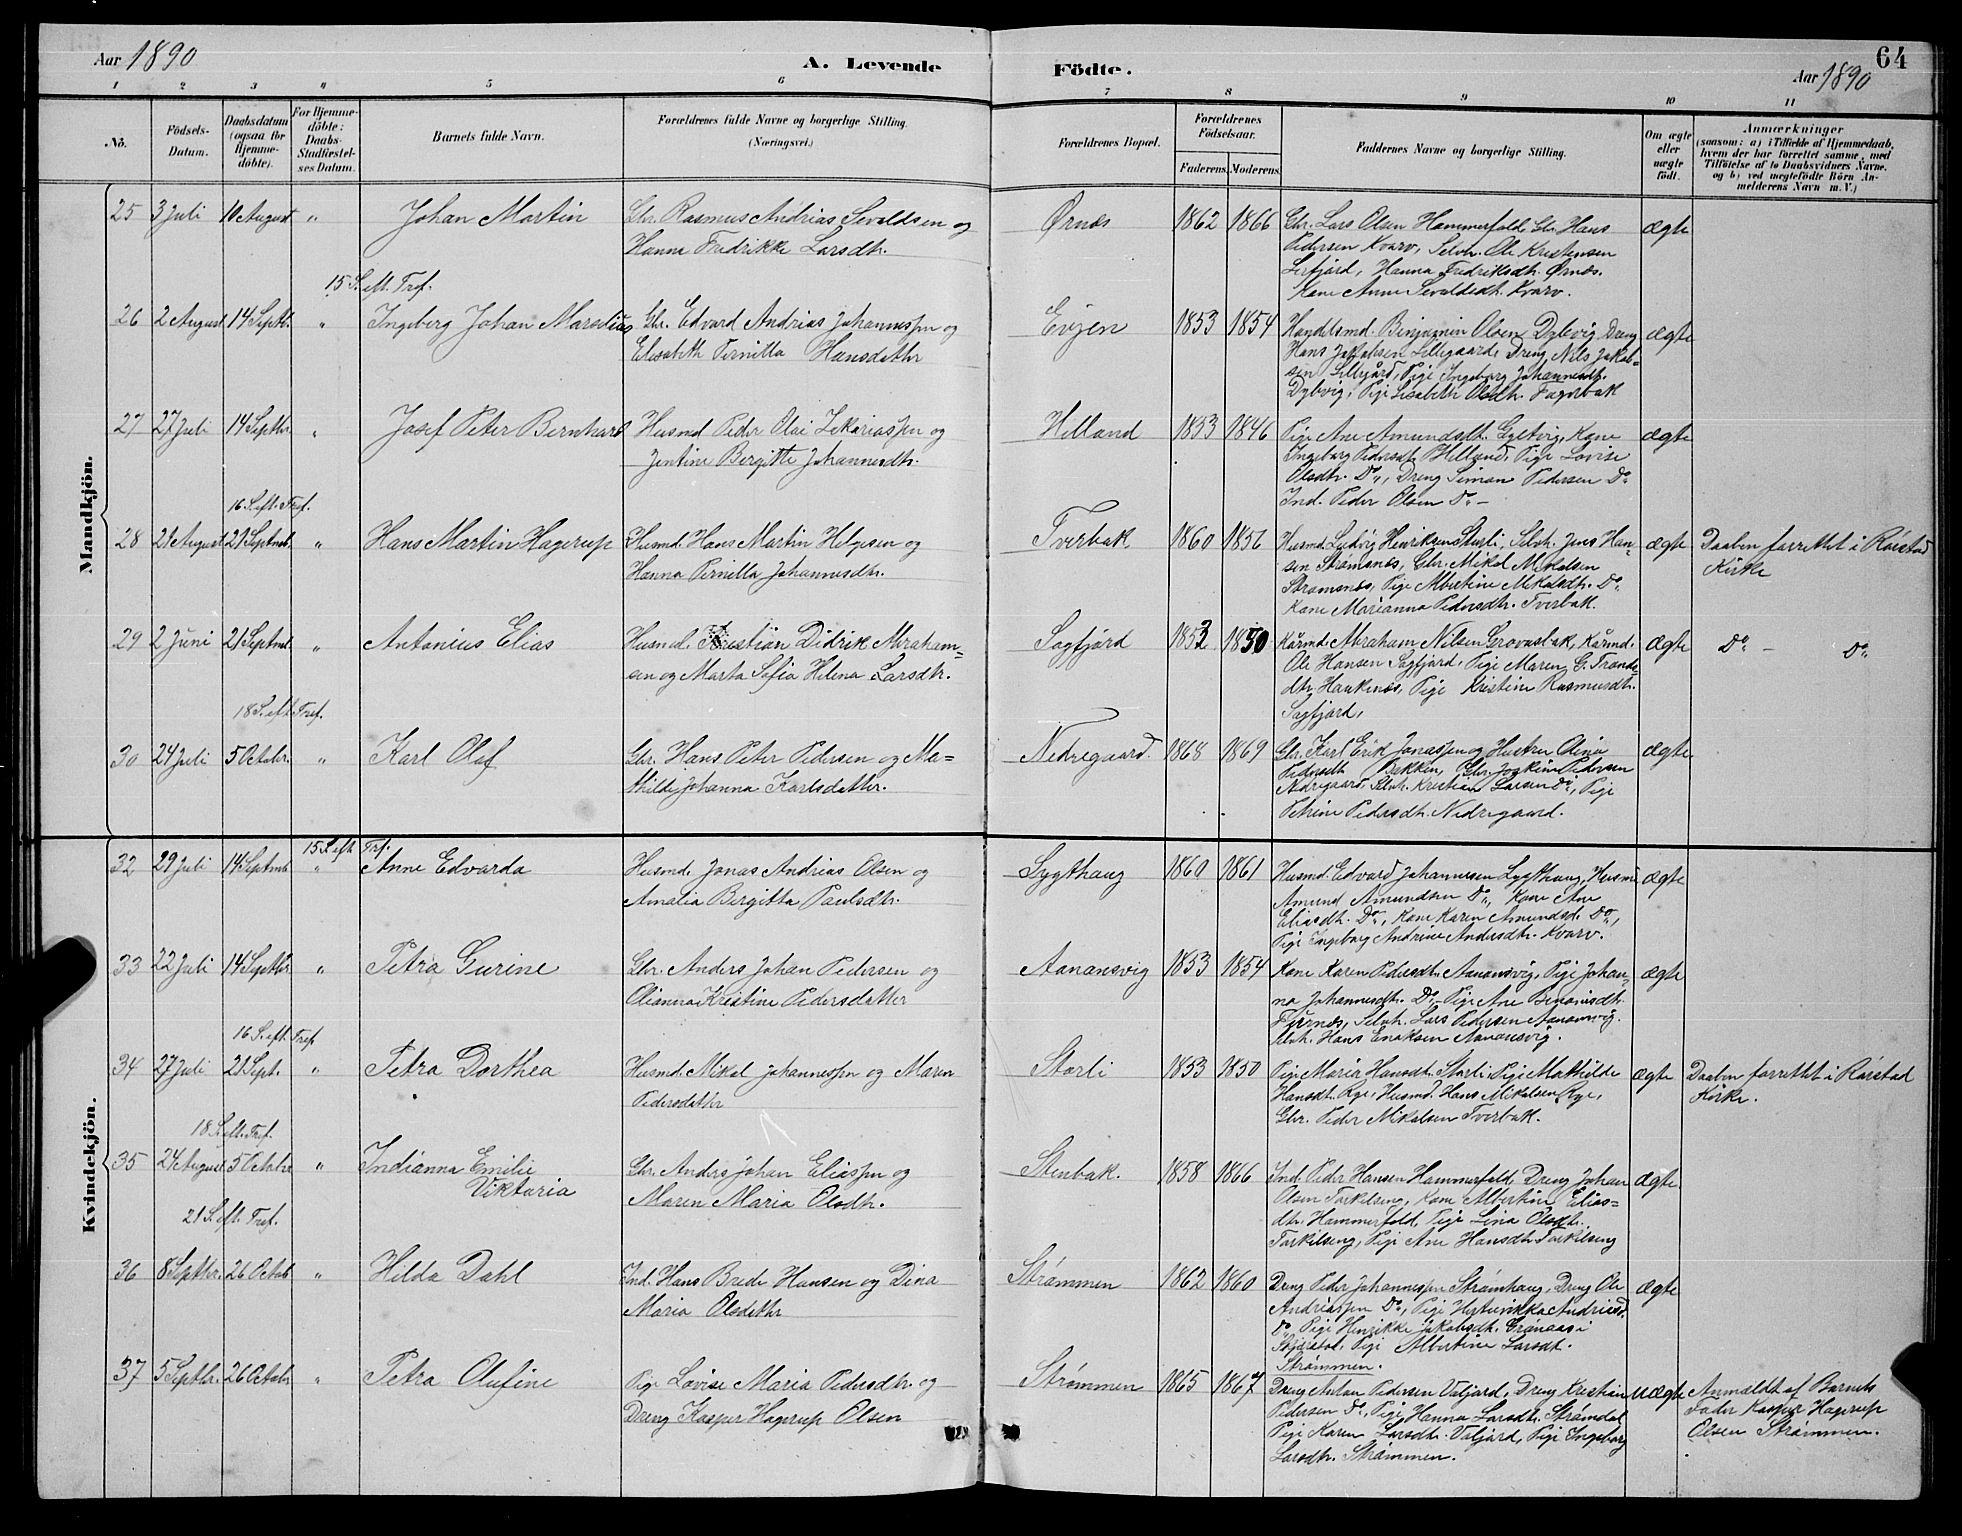 Aar 1890
A. Levende Födte.
64
Aar 1890
1 2 3 4 5 6 7 8 9 10 11
No.
Födsels-Datum.
Daabsdatum (ogsaa for Hjemme-döbte).
For Hjemme-döbte: Daabs-Stadfæstel-ses Datum.
Barnets fulde Navn.
Forældrenes fulde Navne og borgerlige Stilling. (Næringsvei.)
Forældrenes Bopæl.
Forældrenes Födselsaar.
Faderens. Moderens.
Faddernes Navne og borgerlige Stilling.
Om ægte eller uægte födt.
Anmærkninger
(saasom: a) i Tilfælde af Hjemmedaab, hvem der har forrettet samme, med Tilföielse af to Daabsvidners Navne, og b) ved uegtefödte Börn An-melderens Navn m. V.)
Mandkjön.
25 3 Juli 10 August " Johan Martin Gbr. Rasmus Andrias Sevaldsen og
Hanna Fredrikke Larsdtr.
Ørnæs 1862 1866 Gbr. Lars Olsen Hammerfald, Gbr. Hans
Pedersen Kvarv, Selvh. Ole Kristensen
Leifjord, Hanna Fredriksdtr. Ørnæs.
Kone Anne Sevaldsdtr. Kvarv.
ægte
15 S. eft. Tref.
26 2 August 14 Septbr. " Ingeberg Johan Marselius Gbr. Edvard Andrias Johannessen og
Elisabeth Pernilla Hansdatter
Evjen 1853 1854 Handelsmd. Binjamin Olsen Dybvig, Dreng
Hans Jakobsen Lillegaard, Dreng Nils Jakob-
sen Lillegård, Pige Ingeborg Johannesdtr.
Dybvig, Pige Lisabeth Olsdtr. Fagerbak
ægte
27 27 Juli 14 Septbr. " Josef Peter Bernhard Husmd Peder Olai Zekariassen og
Jentine Bergitte Johannesdtr.
Helland 1853 1846 Pige Ane Amundsdt. Gyltvig, Kone
Ingeborg Pedersdt. Helland, Pige Lovise
Olsdtr. Do, Dreng Simon Pedersen Do
Ind. Peder Olsen Do -
ægte
16 S. eft. Tref.
28 21 August 21 Septmb. " Hans Martin Hagerup Husmd. Hans Martin Helgesen og
Hanna Pernilla Johannesdtr.
Tverbak 1860 1856 Husmd. Ludvig Henriksen Storli, Selvh. Jens Han-
sen Strømsnes, Gbr. Mikal Mikalsen
Strømsnes, Pige Albertine Mikalsdtr. Do.
Kone Marianna Pedersdtr. Tverbak.
ægte Daaben forrettet i Rørstad
Kirke
29 2 Juni 21 Septmb. " Antonius Elias Husmd. Kristian Didrik Abraham-
sen og Marta Sofia Helena Larsdtr.
Sagfjord 1853 1850 Kårmd. Abraham Nilsen Grovasbak, Kårmd.
Ole Hansen Sagfjord, Pige Maren G. Tronds-
dtr. Haukenæs, Pige Kristine Rasmusdtr.
Sagfjord,
ægte Do - Do
18 S. eft. Tref.
30 24 Juli 5 Octobr. " Karl Olaf Gbr. Hans Peter Pedersen og Ma-
thilde Johanna Karlsdatter.
Nedregaard. 1868 1869 Gbr. Karl Erik Jonassen og Hustru Olina
Pedersdtr Bakken, Gbr. Joakim Pedersen
Nedregaard, Selvh. Kristian Larsen Do, Pige
Petrine Pedersdtr. Nedregaard.
ægte
Kvindekjön.
15 S. eft. Trf.
32 29 Juli 14 Septmb " Anne Edvarda Husmd. Jonas Andrias Olsen og
Amalia Bergitta Paulsdtr.
Løgthaug 1860 1861 Husmd. Edvard Johannesen Løgthaug, Husmd.
Amund Amundsen Do, Kone Ane
Eliasdt. Do, Kone Karen Amundsd. Do,
Pige Ingeborg Andrine Andersdtr. Kvarv.
ægte
33 22 Juli 14 Septbr " Petra Gurine Gbr. Anders Johan Pedersen og
Olianna Kristine Pedersdatter
Aanansvig 1853 1854 Kone Karen Pedersdt. Aanansvig, Pige Johan-
na Johannesdtr. Do - Pige Ane Benonisdtr.
Furnæs, Selvh. Lars Pedersen Aanansvig.
Selvh. Hans Enoksen Aanansvig.
ægte
16 S. eft. Tref
34 27 Juli 21 Sept. " Petra Dorthea Husmd. Mikal Johannessen og Maren
Pedersdatter
Storli 1853 1850 Pige Maria Hansdt. Storli. Pige Mathilde
Hansdt. Rye, Husmd. Hans Mikalsen Rye,
Gbr. Peder Mikalsen Tverbak.
ægte Daaben forrettet i Rørstad
Kirke.
18 S. eft. Tref.
35 24 August 5 Octobr " Indianna Emilie
Viktoria
Gbr. Anders Johan Eliassen og
Maren Maria Olsdtr.
Stenbak. 1858 1866 Ind. Peder Hansen Hammerfald, Dreng Johan
Olsen Torkilseng, Kone Albertine Elias-
dtr. Hammerfald, Pige Lina Olsdtr.
Torkilseng, Pige Ane Hansdtr. Torkilseng
ægte
21 S. eft. Tref.
36 8 Septbr. 26 Octob " Hilda Dahl Ind. Hans Brede Hansen og Dina
Maria Olsdatter
Strømmen 1862 1860 Dreng Peder Johannessen Strømhaug, Dreng Ole
Andriassen Do, Pige Andriasd.
Do, Pige Henrikke Jakobsdt. Grønaas i
Pige Albertine Larsdt.
Strømmen.
ægte
37 5 Septbr. 26 Octobr " Petra Olufine Pige Lovise Maria Pedersdtr. og
Dreng Kasper Hagerup Olsen
Strømmen 1865 1867 Dreng Anton Pedersen Valjord, Dreng Kristian
Pedersen Do, Pige Hanna Larsdt. Strømdal
Pige Karen Larsdtr. Valjord, Pige Ingeborg
Larsdtr. Strømmen.
uægte Anmældt af Barnets
Fader Kasper Hagerup
Olsen Strømmen.